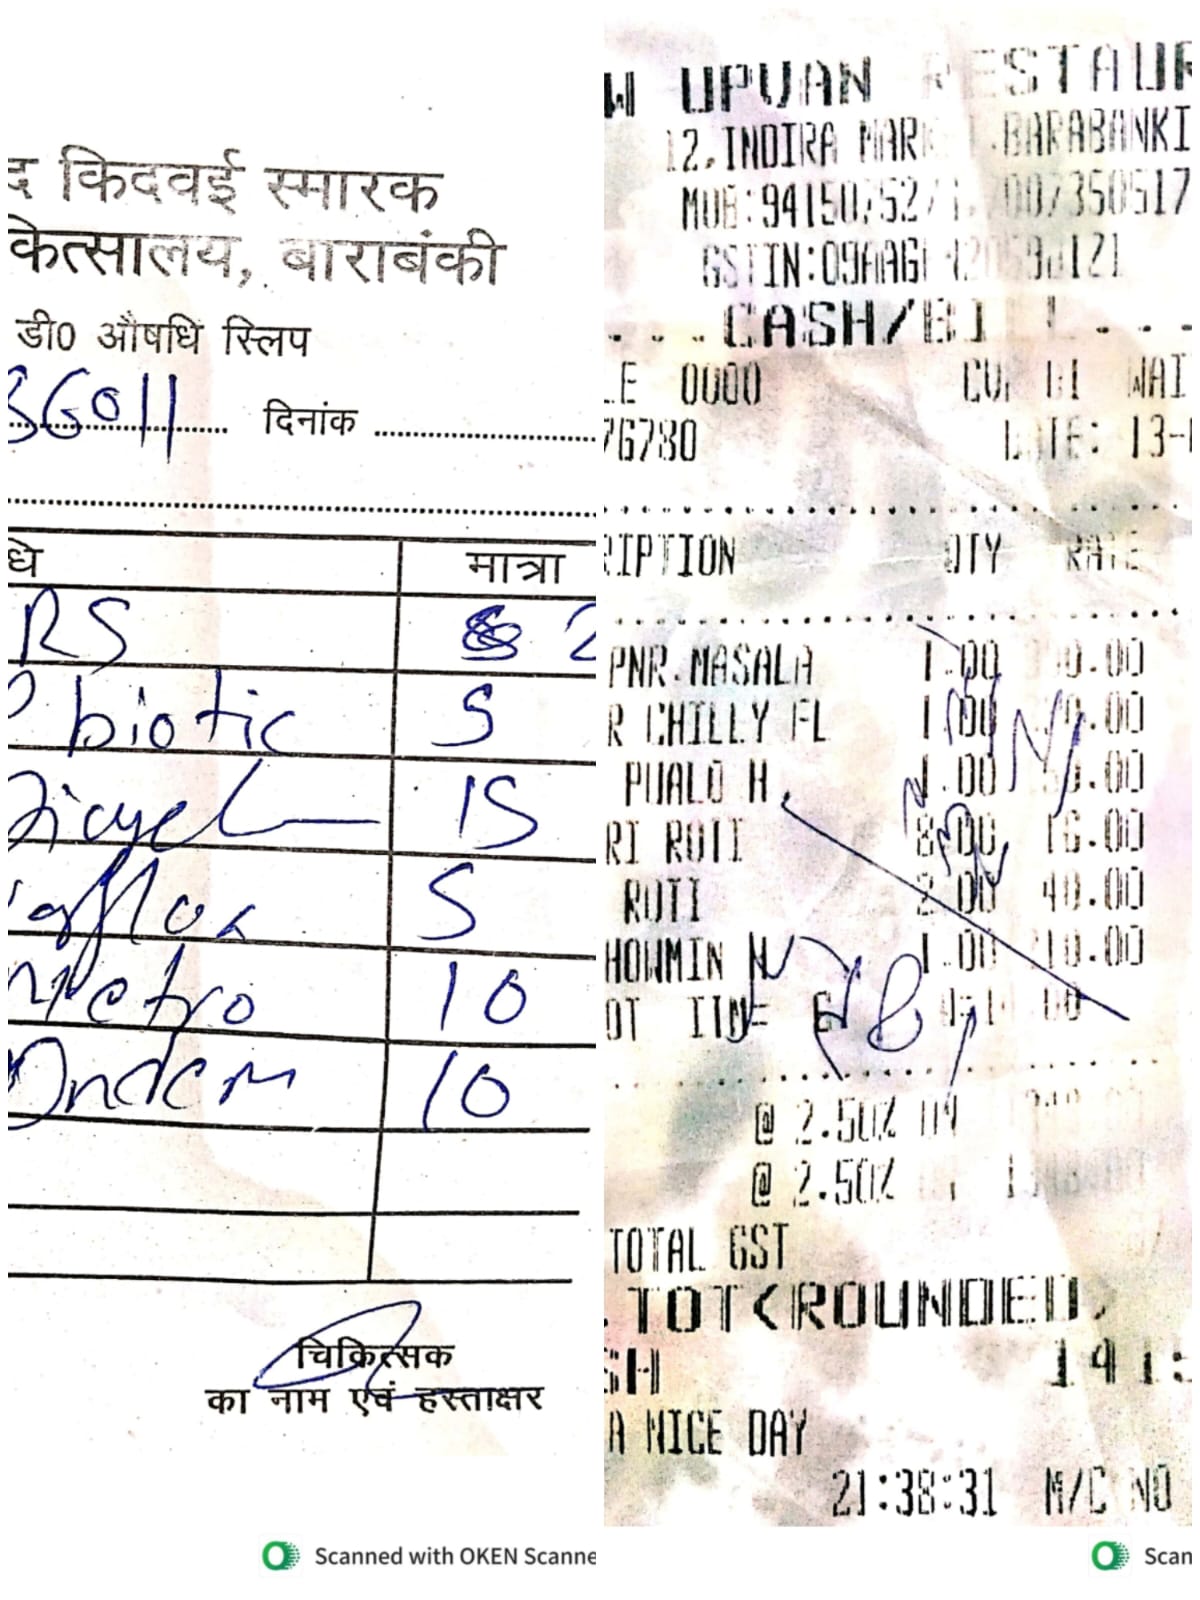 द किदवई स्मारक
कित्सालय, बाराबंकी
डी0 औषधि स्लिप
36011 दिनांक
धि मात्रा
RS 2
biotic 5
15
5
Metro 10
Ondem 10
चिकित्सक
का नाम एवं हस्ताक्षर
Scanned with OKEN Scanne
W UPVAN RESTAUR
12,INDIRA MARK .BARABANKI
MOB:94150
GSTIN:09
...CASH/BI
LE 0000 WAI
76780 DATE: 13-
RIPTION QTY RATE
PNR.MASALA 1.00 0.00
R CHILLY FL 1.00 0.00
PUALO H. 1.00 0.00
RI ROTI 8.00 16.00
ROTI 2.00 40.00
HOWMIN N 1.00 10.00
OT
@ 2.50% ON
@ 2.50%
TOTAL GST
.TOT<ROUNDED>
SH 141
A NICE DAY
21:38:31 M/C NO
Scan